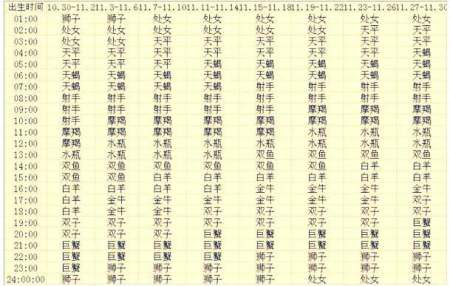 出生时间 10.30-11.2 11.3-11.6 11.7-11.10 11.11-11.14 11.15-11.18 11.19-11.22 11.23-11.26 11.27-11.30
01:00 狮子 狮子 处女 处女 处女 处女 处女 处女
02:00 处女 处女 处女 处女 处女 处女 天平 天平
03:00 处女 处女 天平 天平 天平 天平 天平 天平
04:00 天平 天平 天平 天平 天平 天平 天平 天蝎
05:00 天平 天平 天平 天蝎 天蝎 天蝎 天蝎 天蝎
06:00 天蝎 天蝎 天蝎 天蝎 天蝎 天蝎 天蝎 天蝎
07:00 天蝎 天蝎 天蝎 天蝎 射手 射手 射手 射手
08:00 射手 射手 射手 射手 射手 射手 射手 射手
09:00 射手 射手 射手 射手 射手 摩羯 摩羯 摩羯
10:00 射手 摩羯 摩羯 摩羯 摩羯 摩羯 摩羯 摩羯
11:00 摩羯 摩羯 摩羯 摩羯 摩羯 水瓶 水瓶 水瓶
12:00 摩羯 水瓶 水瓶 水瓶 水瓶 水瓶 水瓶 双鱼
13:00 水瓶 水瓶 水瓶 水瓶 双鱼 双鱼 双鱼 双鱼
14:00 双鱼 双鱼 双鱼 双鱼 双鱼 双鱼 白羊 白羊
15:00 双鱼 双鱼 双鱼 白羊 白羊 白羊 白羊 白羊
16:00 白羊 白羊 白羊 白羊 金牛 金牛 金牛 金牛
17:00 白羊 金牛 金牛 金牛 金牛 金牛 双子 双子
18:00 白羊 金牛 金牛 双子 双子 双子 双子 双子
19:00 双子 双子 双子 双子 双子 双子 双子 巨蟹
20:00 双子 双子 双子 巨蟹 巨蟹 巨蟹 巨蟹 巨蟹
21:00 巨蟹 巨蟹 巨蟹 巨蟹 巨蟹 巨蟹 巨蟹 巨蟹
22:00 巨蟹 巨蟹 巨蟹 巨蟹 狮子 狮子 狮子 狮子
23:00 巨蟹 狮子 狮子 狮子 狮子 狮子 狮子 狮子
24:00:00 狮子 狮子 狮子 狮子 狮子 处女 处女 处女